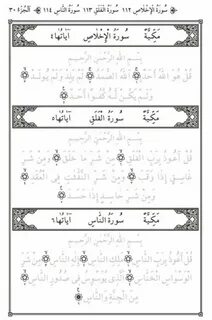 سُورَةُ الْإِخْلَاصِ ١١٢ سُورَةُ الْفَلَقِ ١١٣ سُورَةُ النَّاسِ ١١٤ اَلْجُزْءُ ٣٠
مَكِّيَّةٌ سُورَةُ الْإِخْلَاصِ آيَاتُهَا ٤
بِسْمِ اللهِ الرَّحْمَنِ الرَّحِيمِ
قُلْ هُوَ اللهُ أَحَدٌ ١ اللهُ الصَّمَدُ ٢ لَمْ يَلِدْ وَلَمْ يُولَدْ ٣
وَلَمْ يَكُنْ لَهُ كُفُوًا أَحَدٌ ٤
مَكِّيَّةٌ سُورَةُ الْفَلَقِ آيَاتُهَا ٥
بِسْمِ اللهِ الرَّحْمَنِ الرَّحِيمِ
قُلْ أَعُوذُ بِرَبِّ الْفَلَقِ ١ مِنْ شَرِّ مَا خَلَقَ ٢ وَمِنْ شَرِّ
غَاسِقٍ إِذَا وَقَبَ ٣ وَمِنْ شَرِّ النَّفَّاثَاتِ فِي الْعُقَدِ ٤
وَمِنْ شَرِّ حَاسِدٍ إِذَا حَسَدَ ٥
مَكِّيَّةٌ سُورَةُ النَّاسِ آيَاتُهَا ٦
بِسْمِ اللهِ الرَّحْمَنِ الرَّحِيمِ
قُلْ أَعُوذُ بِرَبِّ النَّاسِ ١ مَلِكِ النَّاسِ ٢ إِلَهِ النَّاسِ ٣ مِنْ شَرِّ
الْوَسْوَاسِ الْخَنَّاسِ ٤ الَّذِي يُوَسْوِسُ فِي صُدُورِ النَّاسِ ٥
مِنَ الْجِنَّةِ وَالنَّاسِ ٦